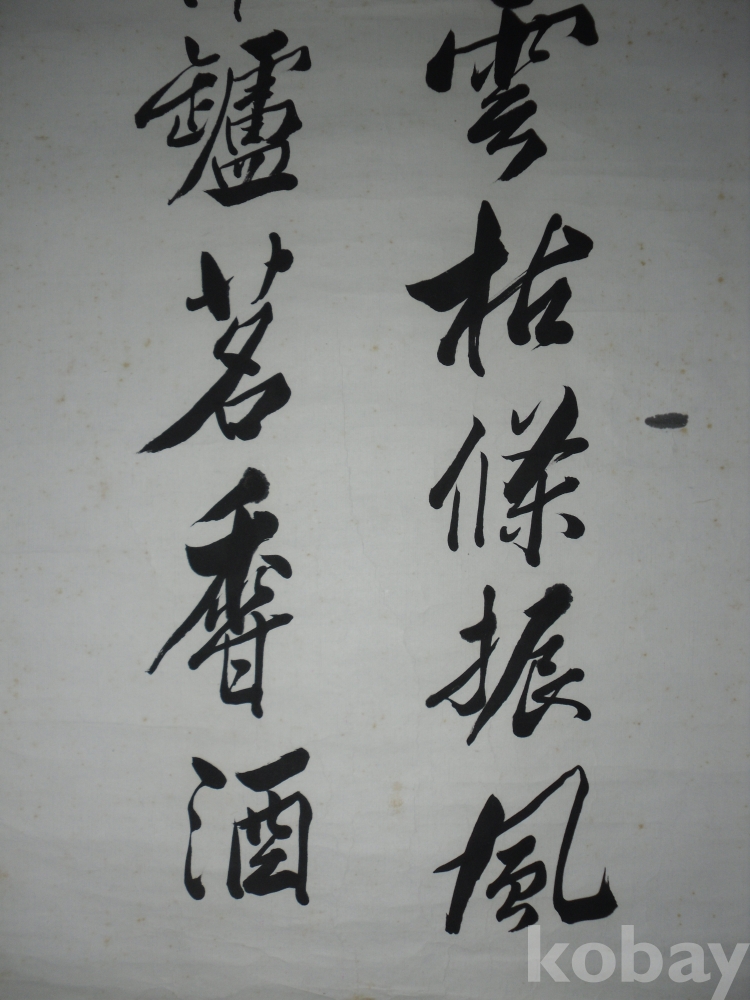 雲枯條振風
罏茗香酒
kobay